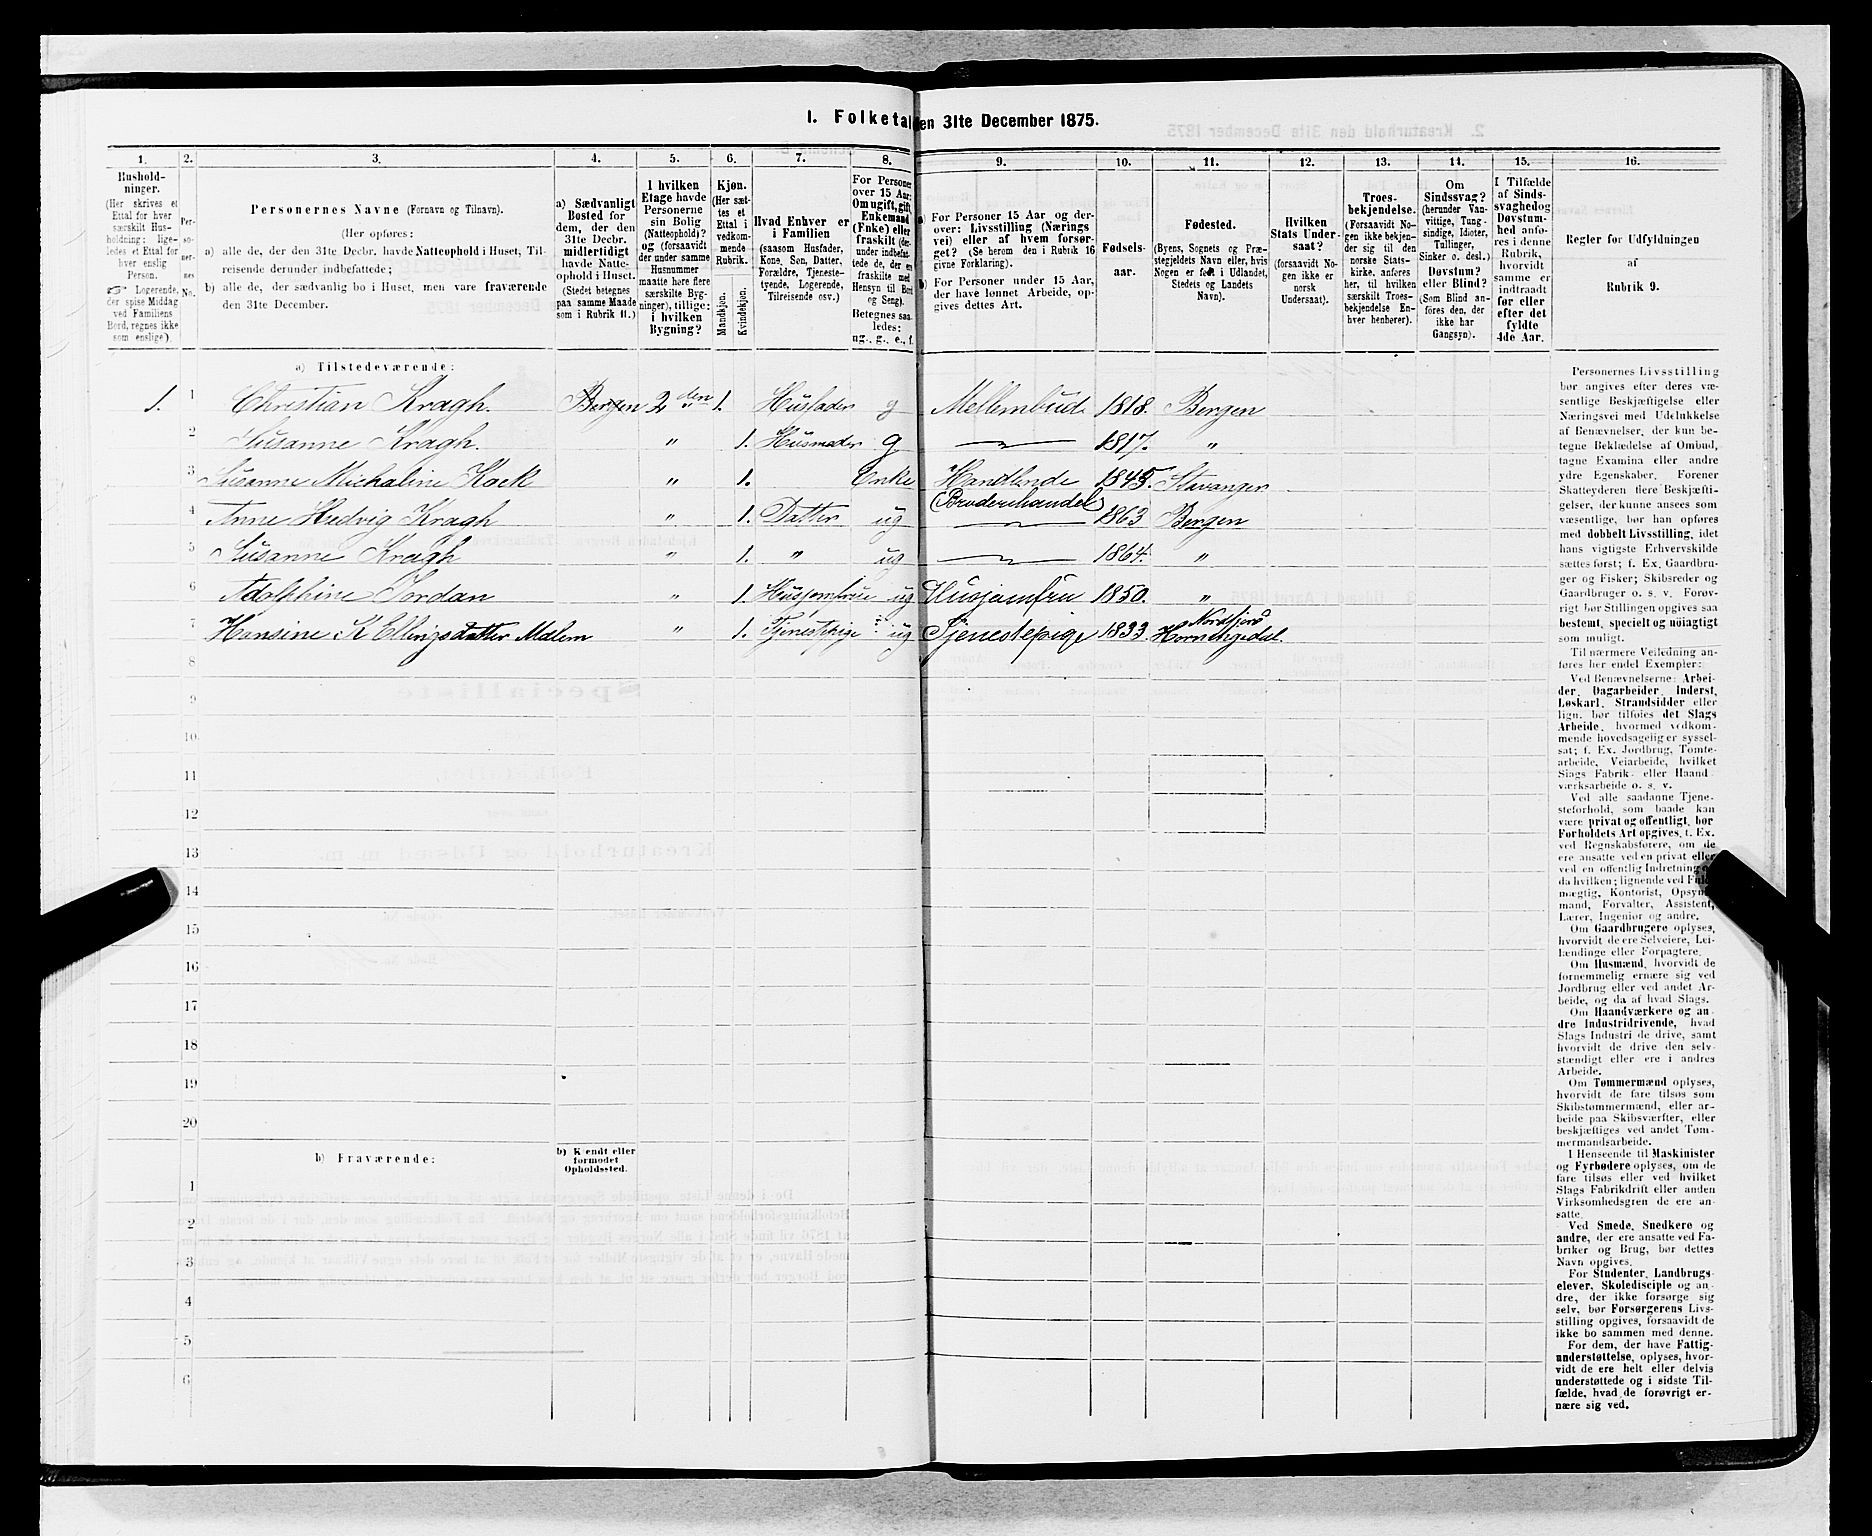 1. Folketal
en 31te December 1875.
1. 2. 3. 4. 5. 6. 7. 8. 9. 10. 11. 12. 13. 14. 15. 16.
Hushold-
ninger.
(Her skrives et
Ettal for hver
særskilt Hus-
holdning; lige-
ledes et Ettal for
hver enslig
Person.
☞ Logerende,
der spise Middag
ved Familiens
Bord, regnes ikke
som enslige).
Per-
so-
ner-
nes
No.
Personernes Navne (Fornavn og Tilnavn).
(Her opføres:
a) alle de, der den 31te Decbr. havde Natteophold i Huset, Til-
reisende derunder indbefattede;
b) alle de, der sædvanlig bo i Huset, men vare fraværende
den 31te December.
a) Sædvanligt
Bosted for
dem, der den
31te Decbr.
midlertidigt
havde Natte-
ophold i Huset.
(Stedet betegnes
paa samme Maade
som i Rubrik 11.)
I hvilken
Etage havde
Personerne
sin Bolig
(Natteophold)?
og (forsaavidt
der under samme
Husnummer
maatte høre flere
særskilte Byg-
ninger), tillige:
i hvilken
Bygning?
Kjøn.
(Her sæt-
tes et
Ettal i
vedkom-
mende
Rubrik.
Mandkjøn.
Kvindekjøn.
Hvad Enhver er
i Familien
(saasom Husfader,
Kone, Søn, Datter,
Forældre, Tjeneste-
tyende, Logerende,
Tilreisende osv.)
For Personer
over 15 Aar:
Om ugift, gift,
Enkemand
(Enke) eller
fraskilt (der-
under indbefat-
tede de, der er
fraskilte med
Hensyn til Bord
og Seng).
Betegnes saa-
ledes:
ug., g., e., f.
a) For Personer 15 Aar og der-
over: Livsstilling (Nærings
vei) eller af hvem forsør-
get? (Se herom den i Rubrik 16
givne Forklaring).
b) For Personer under 15 Aar,
der have lønnet Arbeide, op-
gives dettes Art.
Fødsels-
aar.
Fødested.
(Byens, Sognets og Præ-
stegjeldets Navn eller, hvis
Nogen er født i Udlandet,
Stedets og Landets
Navn).
Hvilken
Stats Under-
saat?
(forsaavidt No-
gen ikke er
norsk
Undersaat).
Troes-
bekjendelse.
(Forsaavidt No-
gen ikke bekjen-
der sig til den
norske Stats-
kirke, anføres
her, til hvilken
særskilt Troes-
bekjendelse En-
hver henhører).
Om
Sindssvag?
(herunder Van-
vittige, Tung-
sindige, Idioter,
Tullinger,
Sinker o. desl.)
Døvstum?
eller Blind?
(Som Blind an-
føres den, der
ikke har
Gangsyn).
I Tilfælde
af Sinds-
svaghed og
Døvstum-
hed anfø-
res i denne
Rubrik,
hvorvidt
samme er
indtraadt
før eller
efter det
fyldte
4de Aar.
Regler for Udfyldningen
af
Rubrik 9.
a) Tilstedeværende:
1. 1 Christian Kragh. Bergen 2den 1. Husfader g Mellembud 1818. Bergen
2 Susanne Kragh. " 1. Husmoder g 1817. "
3 Susanne Michaline Kock " 1. Enke Handlende 1845. Stavanger
(Broderihandel)
4 Anne Hedvig Kragh " 1. Datter ug 1863 Bergen
5 Susanne Kragh " 1. " ug 1864. "
6 Adolphine Jordan " 1. Husjomfrue ug Husjomfru 1850. "
Nordfjord
7 Hansine K Ellingsdatter Molem " 1. Tjenestepige ug Tjenestepige 1833. Horningedal
8
9
10
11
12
13
14
15
16
17
18
19
20
b) Fraværende:
b) Kjendt eller
formodet
Opholdssted.
1
2
3
4
5
6
Personernes Livsstilling
bør angives efter deres væ-
sentlige Beskjæftigelse eller
Næringsvei med Udelukkelse
af Benævnelser, der kun be-
tegne Beklædelse af Ombud,
tagne Examina eller andre
ydre Egenskaber. Forener
Skatteyderen flere Beskjæfti-
gelser, der kunne ansees som
væsentlige, bør han opføres
med dobbelt Livsstilling, idet
hans vigtigste Erhvervskilde
sættes først; f. Ex. Gaardbru-
ger og Fisker; Skibsreder og
Gaardbruger o. s. v. Forøv-
rigt bør Stillingen opgives saa
bestemt, specielt og nøiagtigt
som muligt.
Til nærmere Veiledning an-
føres her endel Exempler:
Ved Benævnelserne: Arbei-
der, Dagarbeider, Inderst,
Løskarl, Strandsidder eller
lign. bør tilføies det Slags
Arbeide, hvormed vedkom-
mende hovedsagelig er syssel-
sat; f. Ex. Jordbrug, Tomte-
arbeide, Veiarbeide, hvilket
Slags Fabrik- eller Haand-
værksarbeide o. s. v.
Ved alle saadanne Tjene-
steforhold, som baade kan
være privat og offentligt, bør
Forholdets Art opgives, f. Ex.
ved Regnskabsførere, om de
ere ansatte ved en privat eller
ved en offentlig Indretning og
da hvilken; lignende ved Fuld-
mægtig, Kontorist, Opsyns-
mand, Forvalter, Assistent,
Lærer, Ingeniør og andre.
Om Gaardbrugere oplyses,
hvorvidt de ere Selveiere, Lei-
lændinge eller Forpagtere.
Om Husmænd, hvorvidt de
fornemmelig ernære sig ved
Jordbrug eller ved andet Ar-
beide, og da af hvad Slags.
Om Haandværkere og an-
dre Industridrivende, hvad
Slags Industri de drive, samt
hvorvidt de drive den selv-
stændigt eller ere i andres
Arbeide.
Om Tømmermænd oplyses,
hvorvidt de fare tilsøs som
Skibstømmermænd, eller ar-
beide paa Skibsværfter, eller
beskjæftiges ved andet Tøm-
mermandsarbeide.
I Henseende til Maskinister
og Fyrbødere oplyses, om de
fare tilsøs eller ved hvilket
Slags Fabrikdrift eller anden
Virksomhedsgren de ere an-
satte.
Ved Smede, Snedkere og
andre, der ere ansatte ved Fa-
briker og Brug, bør dettes
Navn opgives.
For Studenter, Landbrugs-
elever, Skoledisciple og an-
dre, der ikke forsørge sig
selv, bør Forsørgerens Livs-
stilling opgives, forsaavidt de
ikke bo sammen med denne.
For dem, der have Fattig-
understøttelse, oplyses, hvor-
vidt de ere helt eller delvis
understøttede og i sidste Til-
fælde, hvad de forøvrigt er-
nære sig ved.